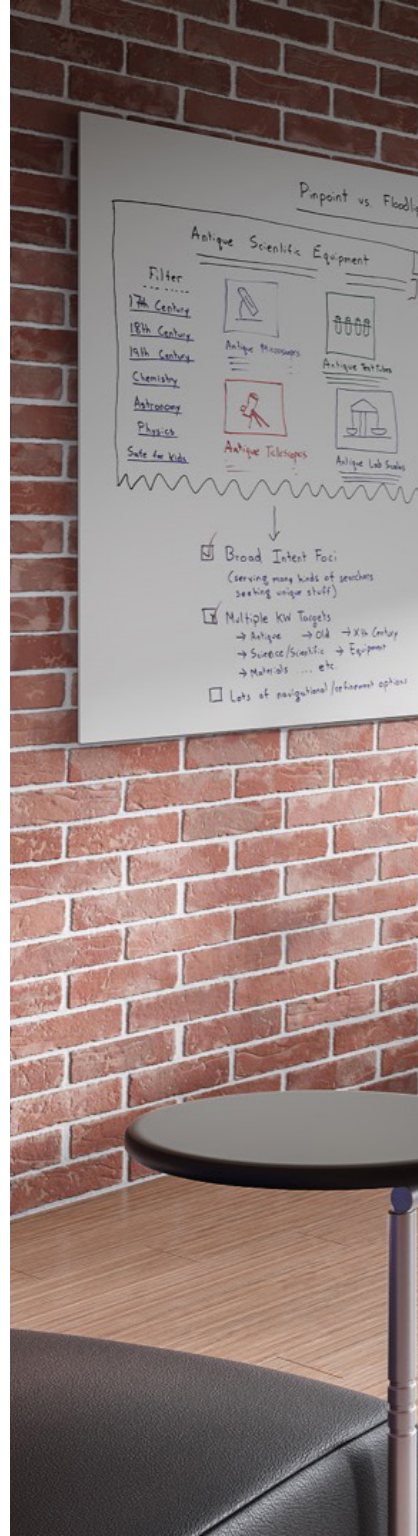 Pinpoint vs. Floodli
Antique Scientific Equipment
Filter
17th Century
18th Century
19th Century
Chemistry
Astronomy
Physics
Safe for Kids
Antique Microscopes
Antique Test Tubes
Antique Telescopes
Antique Lab Scales
Broad Intent Foci
(serving many kinds of searchers
seeking unique stuff)
Multiple KW Targets
→ Antique → Old → Xth Century
→ Science/Scientific → Equipment
→ Materials .... etc.
Lots of navigational/refinement options